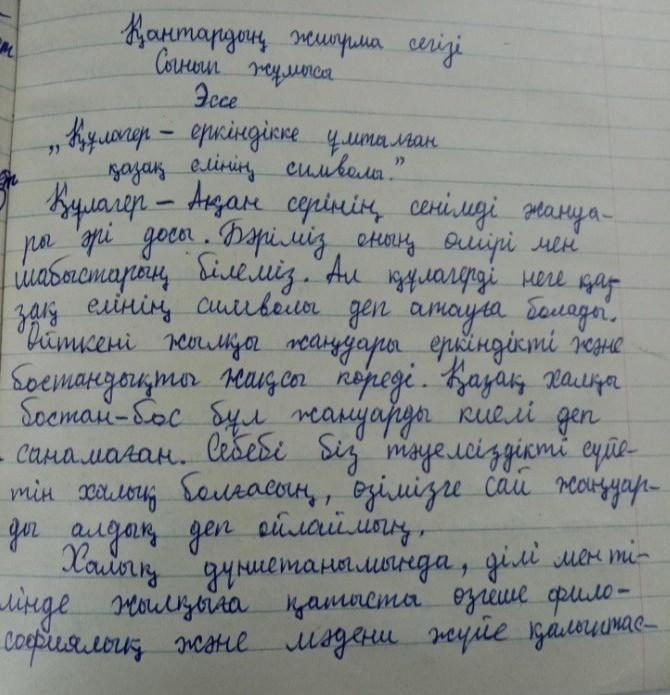 Қантардың жиырма сегізі
Сынып жұмысы
Эссе
„Құлагер – еркіндікке ұмтылған
қазақ елінің символы."
Құлагер – Ақан серінің сенімді жануа-
ры әрі досы. Бәріміз оның өмірі мен
шабыстарың білеміз. Ал құлагерді неге қаз
зақ елінің символы деп атауға болады.
Өйткені жылқы жаңуары еркіндікті және
бостандықты жақсы көреді. Қазақ халқы
бостан-бос бұл жануарды киелі деп
санамаған. Себебі біз тәуелсіздікті сүйе-
тін халық болғасың, өзімізге сай жаңуар-
ды алдық деп ойлаймың.
Халық дүниетанымында, ділі мен ті-
лінде жылқыға қатысты өзгеше фило-
софиялық және мәдени жүйе қалыптас-